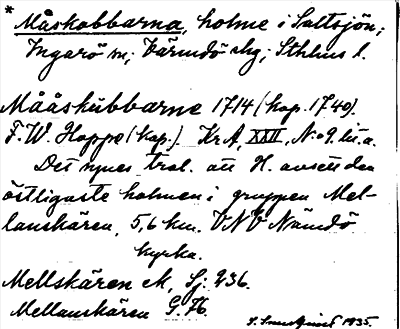 * Måskobbarna, holme i Saltsjön;
Ingarö sn; Värmdö skg; Sthlms l.
Määskubbarne 1714 (kop. 1740).
F. W. Hoppe (kop.) KrA, XXII, N:o 9. lit. a.
Det synes trol. att H. avsett den
östligaste holmen i gruppen Mel-
lanskären, 5,6 km. VNV Nämdö
kyrka.
Mellskären eK, Sj: 236.
Mellanskären G. K.
1935.